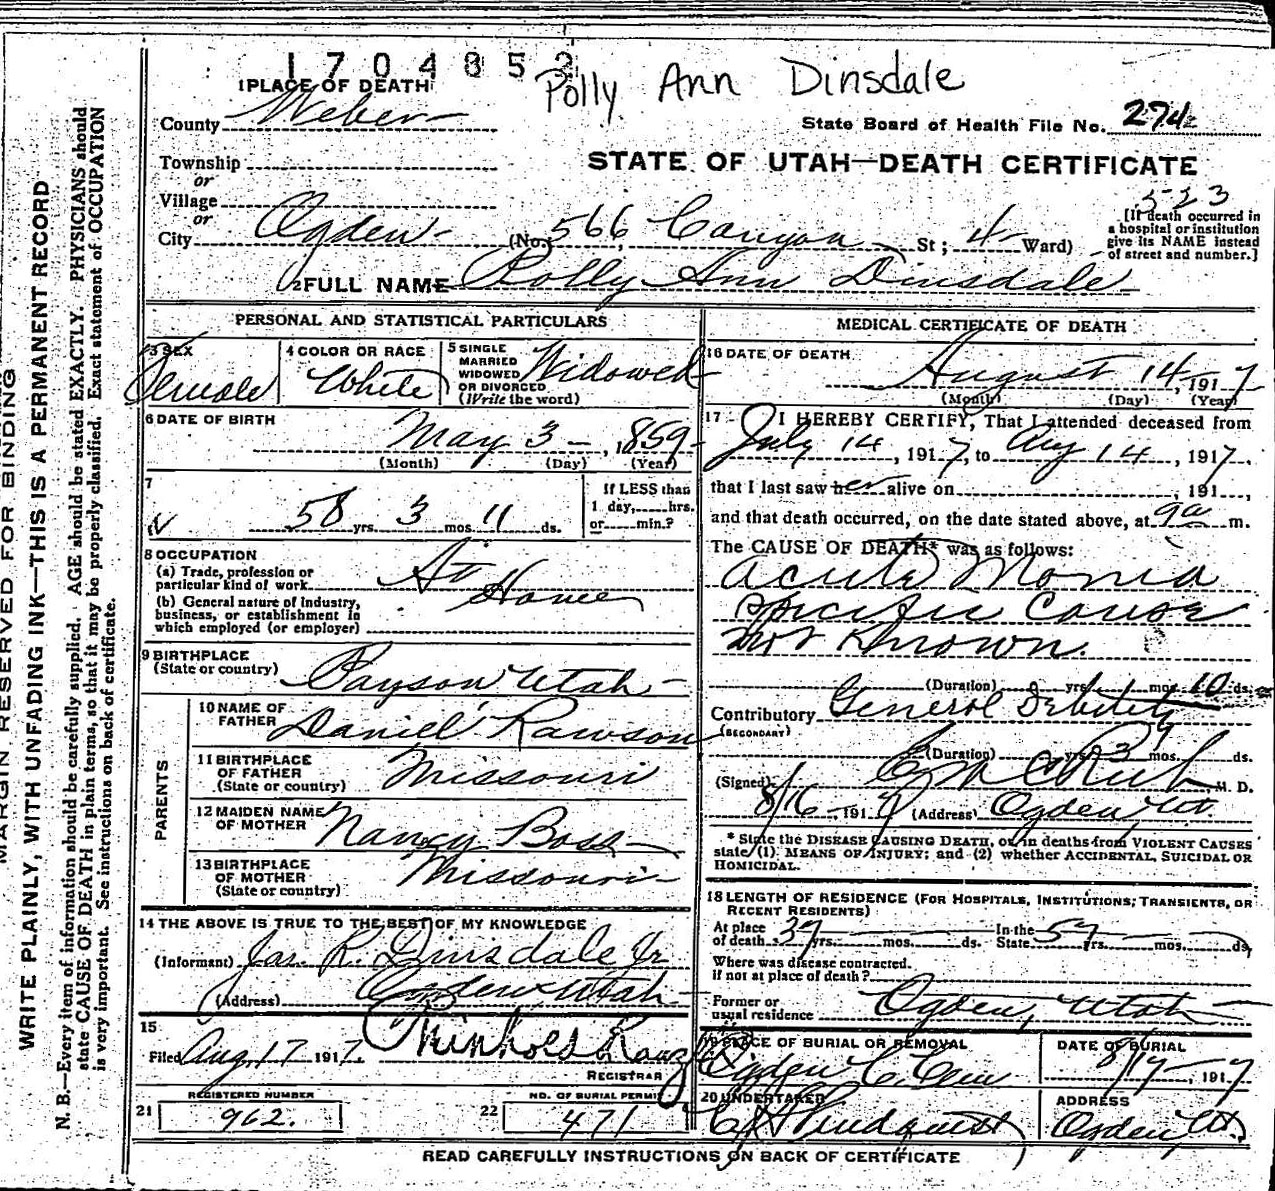 1704852
Polly Ann Dinsdale
1 PLACE OF DEATH
County Weber
State Board of Health File No. 274
Township
or
Village
or
City Ogden
STATE OF UTAH—DEATH CERTIFICATE
523
[If death occurred in a hospital or institution give its NAME instead of street and number.]
(No. 566 Canyon St; 4 Ward)
2 FULL NAME Polly Ann Dinsdale
PERSONAL AND STATISTICAL PARTICULARS
3 SEX Female
4 COLOR OR RACE White
5 SINGLE MARRIED WIDOWED OR DIVORCED (Write the word) Widowed
6 DATE OF BIRTH May 3 — , 1859
(Month) (Day) (Year)
7
58 yrs. 3 mos. 11 ds.
If LESS than 1 day, hrs. or min.?
8 OCCUPATION
(a) Trade, profession or particular kind of work At Home
(b) General nature of industry, business, or establishment in which employed (or employer)
9 BIRTHPLACE (State or country) Payson Utah
PARENTS
10 NAME OF FATHER Daniel Rawson
11 BIRTHPLACE OF FATHER (State or country) Missouri
12 MAIDEN NAME OF MOTHER Nancy Boss
13 BIRTHPLACE OF MOTHER (State or country) Missouri
14 THE ABOVE IS TRUE TO THE BEST OF MY KNOWLEDGE
(Informant) Jas. R. Dinsdale Jr
(Address) Ogden Utah
15
Filed Aug. 17 1917.
REGISTRAR
21 REGISTERED NUMBER 962.
22 NO. OF BURIAL PERMIT 471
MEDICAL CERTIFICATE OF DEATH
16 DATE OF DEATH August 14, 1917
(Month) (Day) (Year)
17 I HEREBY CERTIFY, That I attended deceased from
July 14, 1917, to Aug 14, 1917,
that I last saw her alive on , 191 ,
and that death occurred, on the date stated above, at 9a m.
The CAUSE OF DEATH* was as follows:
Acute
specific cause
not known.
(Duration) yrs. mos. 10 ds.
Contributory General Debility
(SECONDARY)
(Duration) yrs. 3 mos. ds.
(Signed) M. D.
8/16, 1917 (Address) Ogden, Ut.
* State the DISEASE CAUSING DEATH, or, in deaths from VIOLENT CAUSES state (1) MEANS OF INJURY; and (2) whether ACCIDENTAL, SUICIDAL OR HOMICIDAL.
18 LENGTH OF RESIDENCE (FOR HOSPITALS, INSTITUTIONS, TRANSIENTS, OR RECENT RESIDENTS)
At place of death 37 yrs. mos. ds. In the State 57 yrs. mos. ds.
Where was disease contracted, if not at place of death?
Former or usual residence Ogden, Utah
19 PLACE OF BURIAL OR REMOVAL Ogden C. Cem
DATE OF BURIAL 8/17, 1917
20 UNDERTAKER Lindquist
ADDRESS Ogden Ut.
READ CAREFULLY INSTRUCTIONS ON BACK OF CERTIFICATE
MARGIN RESERVED FOR BINDING
WRITE PLAINLY, WITH UNFADING INK—THIS IS A PERMANENT RECORD
N. B.—Every item of information should be carefully supplied. AGE should be stated EXACTLY. PHYSICIANS should
state CAUSE OF DEATH in plain terms, so that it may be properly classified. Exact statement of OCCUPATION
is very important. See instructions on back of certificate.